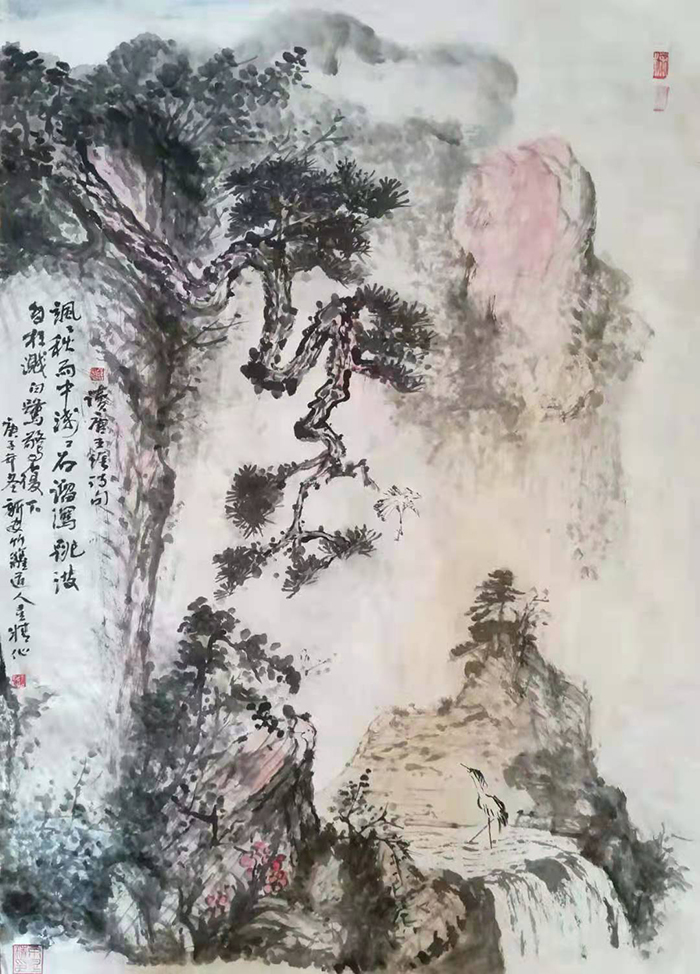 讀唐王維詩句
颯〻秋雨中淺〻石溜瀉跳波
自相濺白鷺驚復下
庚子年冬新安竹籬道人